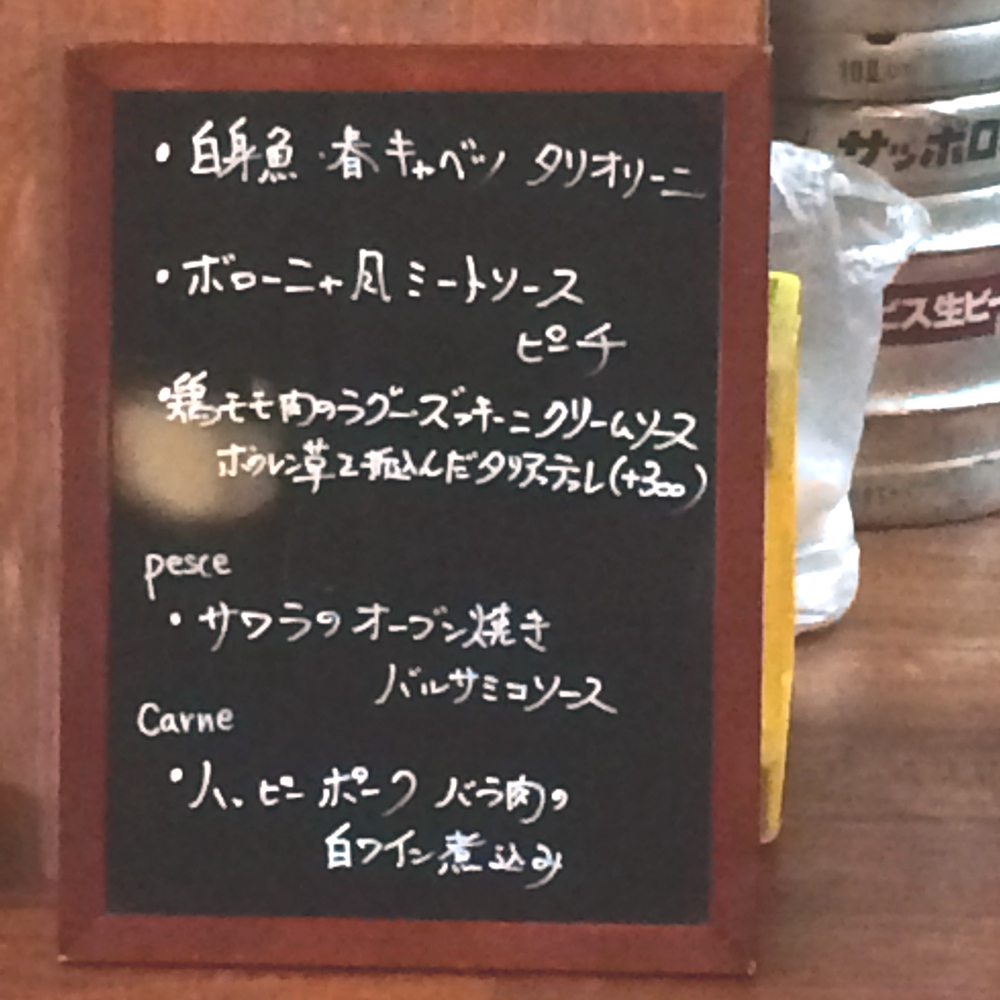 ・白身魚・春キャベツ タリオリーニ
・ボローニャ風ミートソース
ピーチ
・鶏モモ肉のラグーズッキーニクリームソース
ホウレン草を折込んだタリアテッレ(+300)
pesce
・サワラのオーブン焼き
バルサミコソース
Carne
・ハッピーポーク バラ肉の
白ワイン煮込み
サッポロ
ビス生ビー